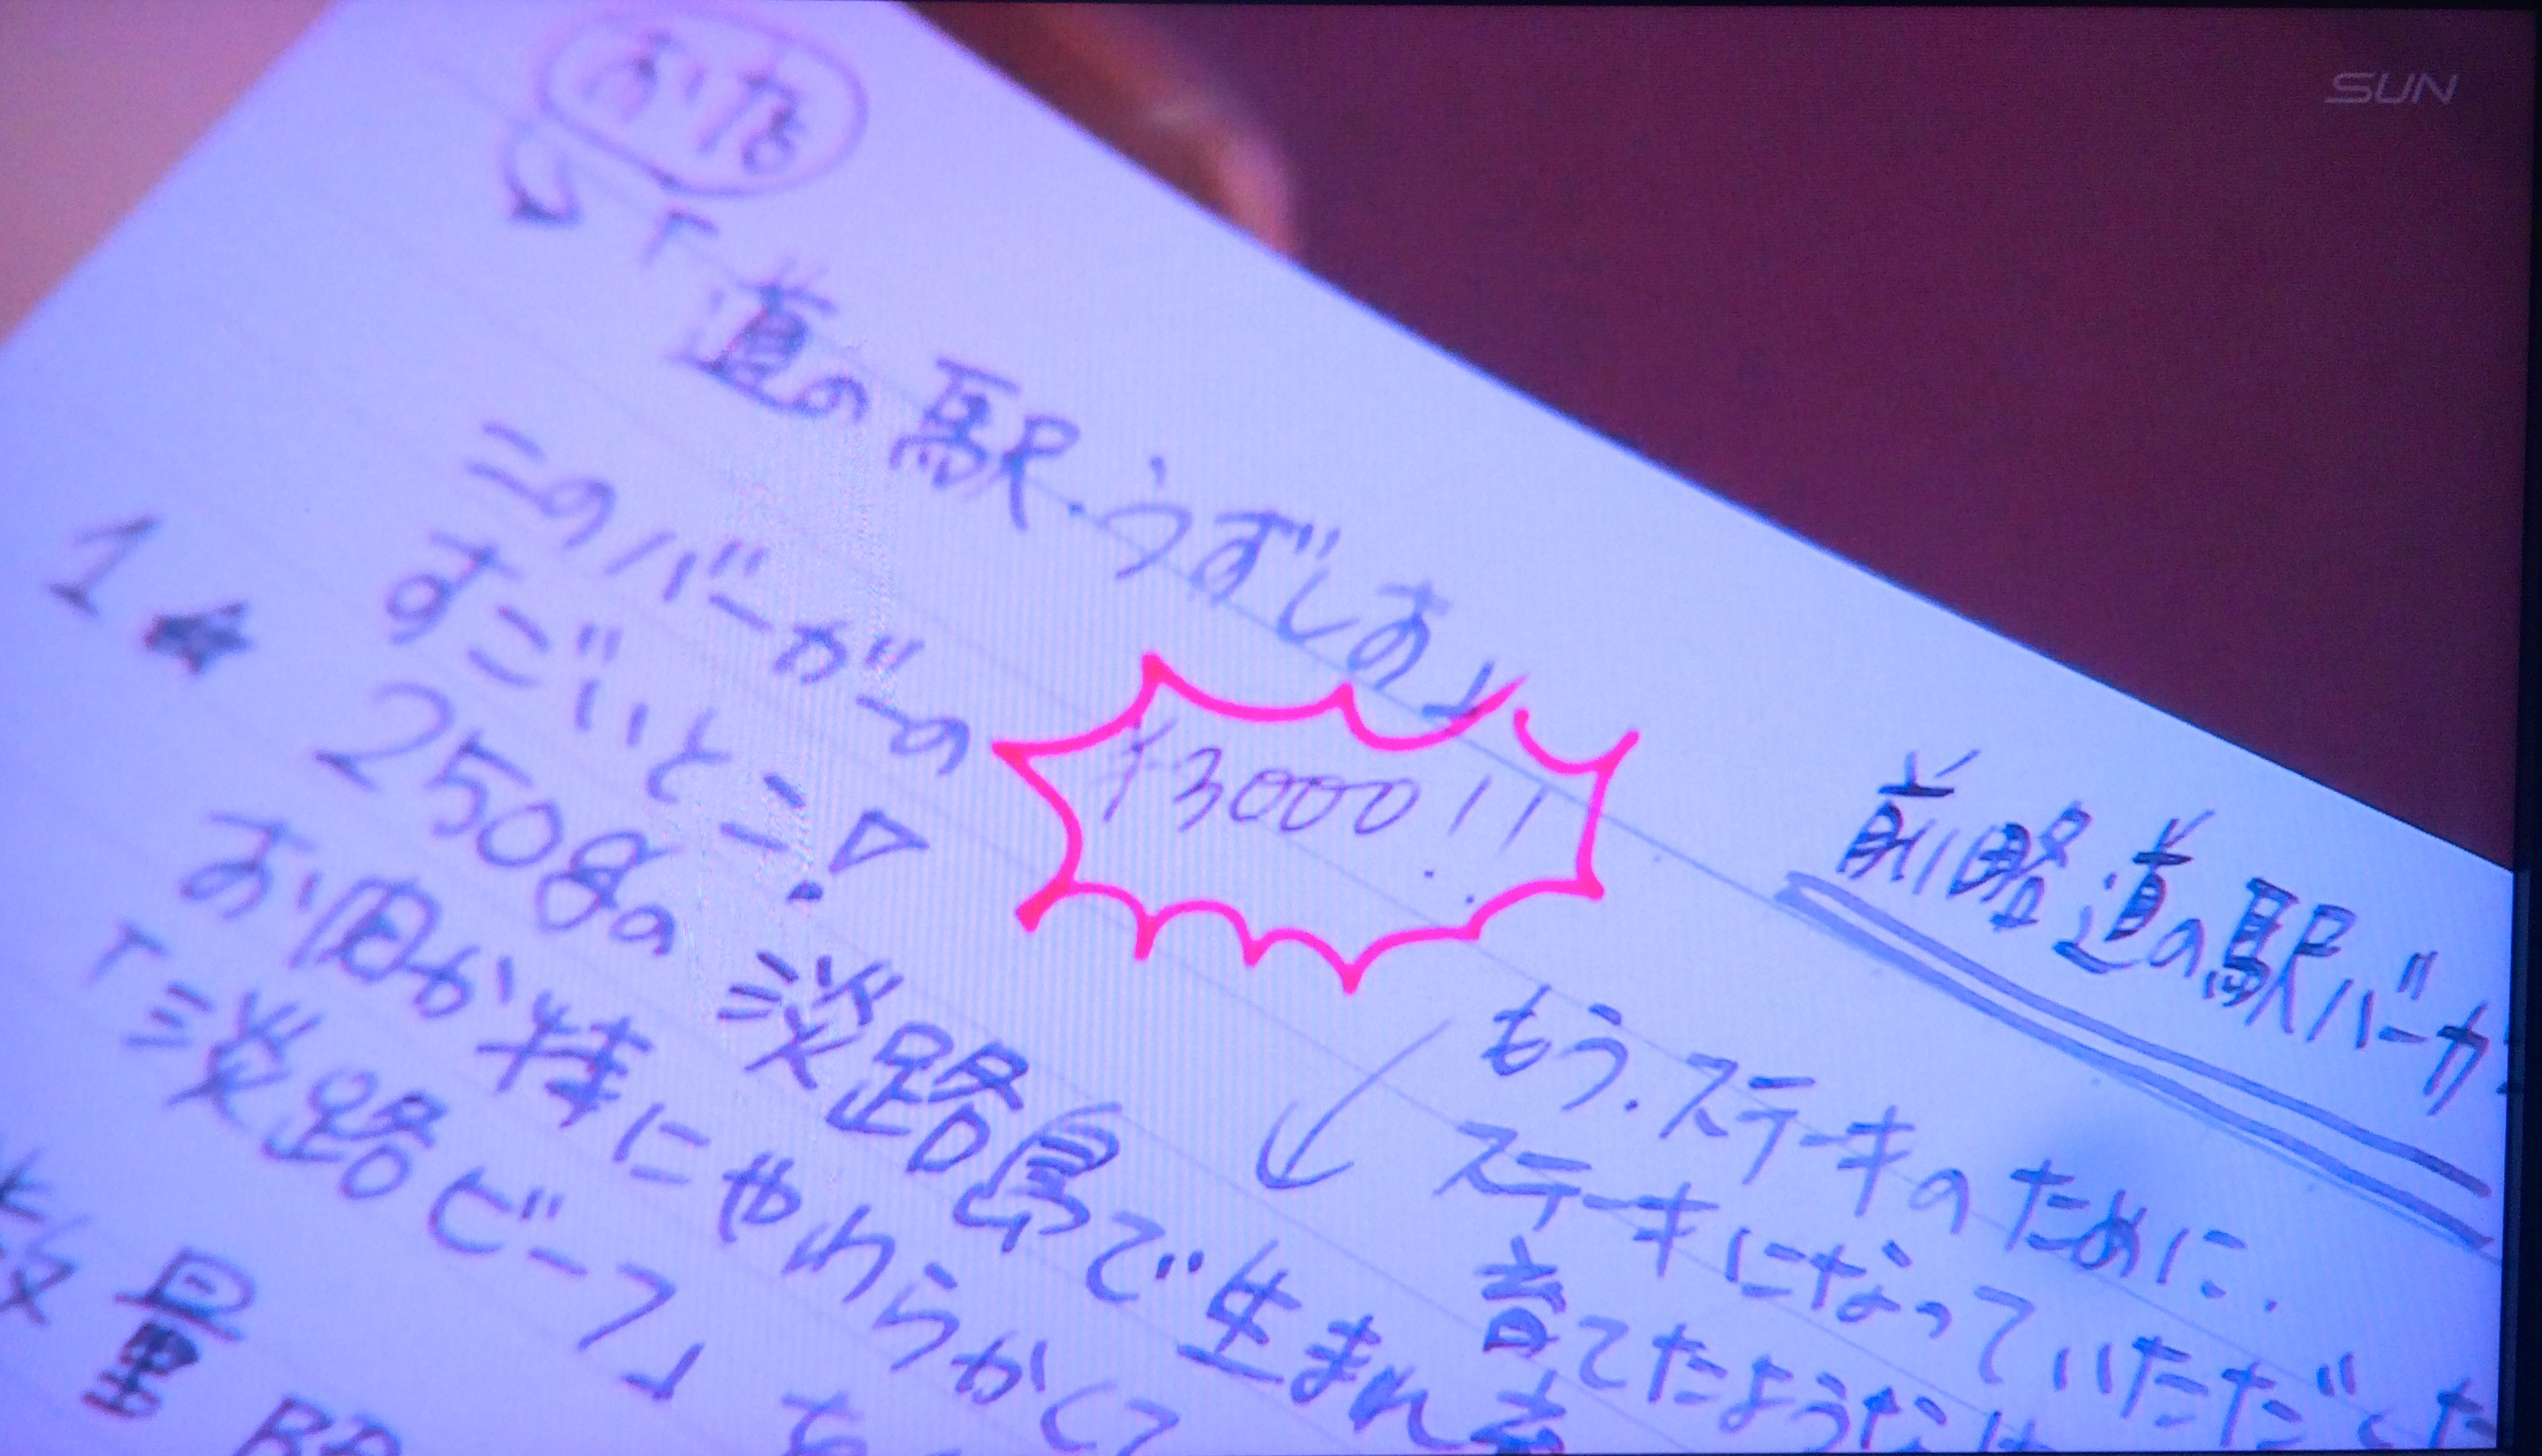 SUN
「道の駅.うずしお」
このバーガーの
すごいとこ!
¥3000!!
1
250gの淡路島で生まれ
お肉が特にやわらかくて
「淡路ビーフ」
数量限
前略道の駅バーガ
もう.ステーキのために.
ステーキになっていただくた
育てたような